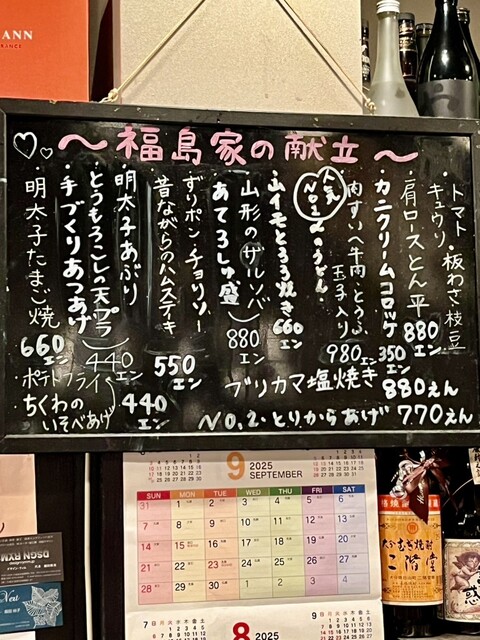 ANN
FRANCE
～福島家の献立～
トマト・板わさ・枝豆
キュウリ・
肩ロースとん平 880エン
カニクリームコロッケ 350エン
肉すい(牛肉・とうふ・玉子入り) 980エン
人気No.1 のうどん
山イモとろろ焼き 660エン
山形のザルソバ 880エン
あてろしゅ盛
ずりポン・チョリソー
昔ながらのハムステーキ 550エン
明太子あぶり
とうもろこしの天プラ 440エン
手づくりあつあげ
明太子たまご焼 660エン
ポテトフライ
ちくわのいそべあげ 440エン
ブリカマ塩焼き 880えん
No.2・とりからあげ 770えん
9 2025 SEPTEMBER
SUN MON TUE WED THU FRI SAT
1 2 3 4 5 6
7 8 9 10 11 12 13
14 15 16 17 18 19 20
21 22 23 24 25 26 27
28 29 30
8 2025
大分むぎ焼酎
二階堂
惑
DSGN RYM